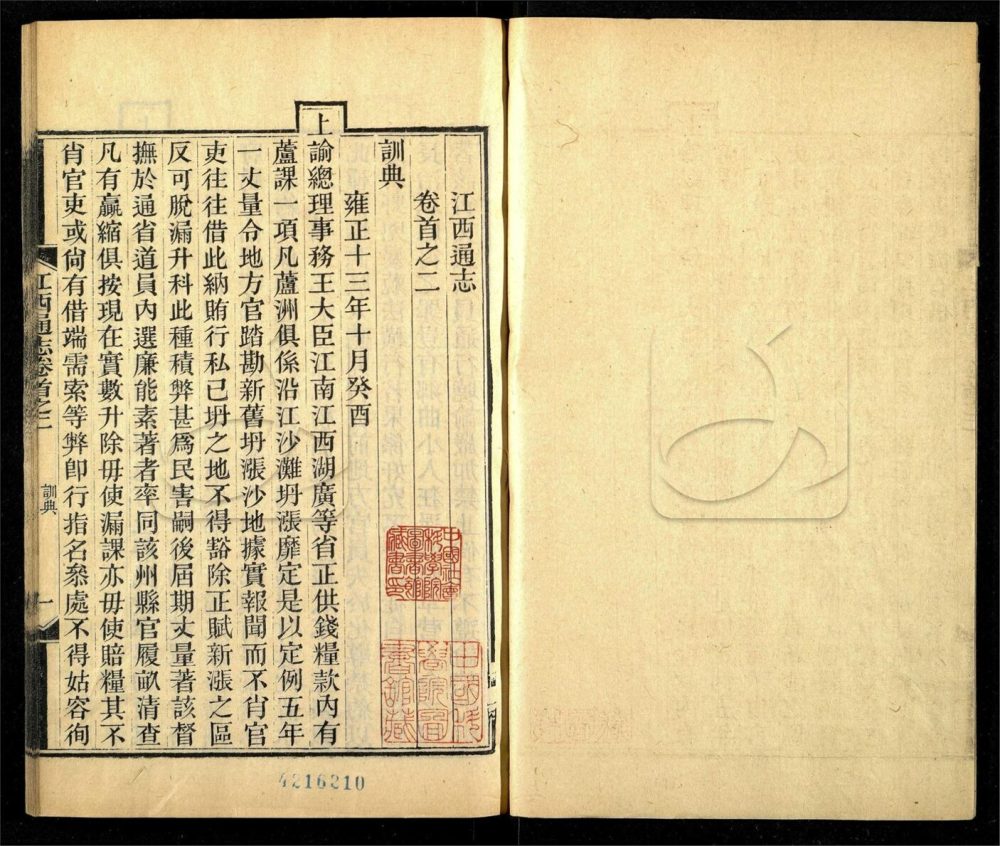 江西通志
卷首之二
訓典
雍正十三年十月癸酉
上諭總理事務王大臣江南江西湖廣等省正供錢糧款内有
蘆課一項凡蘆洲俱係沿江沙灘坍漲靡定是以定例五年
一丈量令地方官踏勘新舊坍漲沙地據實報聞而不肖官
吏往往借此納賄行私已坍之地不得豁除正賦新漲之區
反可脫漏升科此種積弊甚爲民害嗣後屆期丈量著該督
撫於通省道員內選廉能素著者率同該州縣官履畝清查
凡有贏縮俱按現在實數升除毋使漏課亦毋使賠糧其不
肖官吏或尙有借端需索等弊卽行指名叅處不得姑容徇
江西通志卷首之二
訓典
一
中國社會
科學院
圖書館
藏書印
4216210